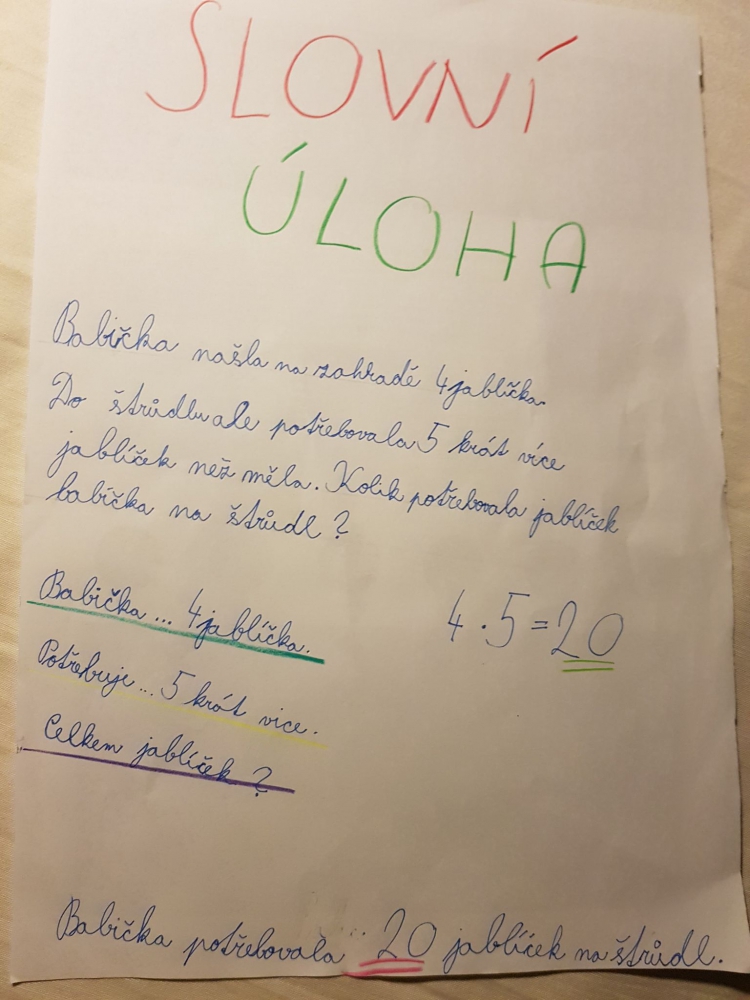 SLOVNÍ
ÚLOHA
Babička našla na zahradě 4 jablíčka.
Do štrůdlu ale potřebovala 5 krát více
jablíček než měla. Kolik potřebovala jablíček
babička na štrůdl?
Babička... 4 jablíčka.
4 · 5 = 20
Potřebuje... 5 krát vice.
Celkem jablíček?
Babička potřebovala 20 jablíček na štrůdl.